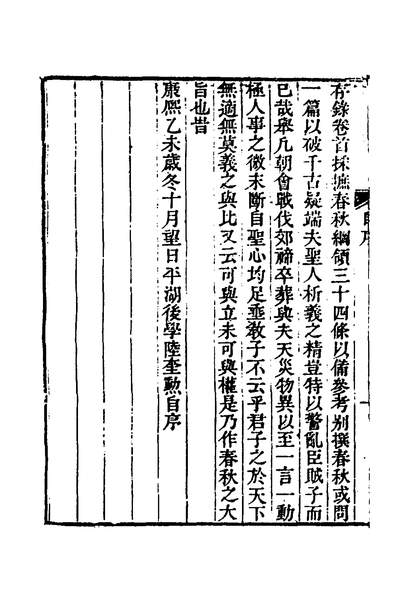 自序
存錄卷首採摭春秋綱領三十四條以備參考别撰春秋或問
一篇以破千古疑端夫聖人析義之精豈特以警亂臣賊子而
已哉舉凡朝會戰伐郊禘卒葬與夫天災物異以至一言一動
極人事之微末斷自聖心均足垂敎子不云乎君子之於天下
無適無莫義之與比又云可與立未可與權是乃作春秋之大
旨也昔
康熙乙未歲冬十月望日平湖後學陸奎勲自序